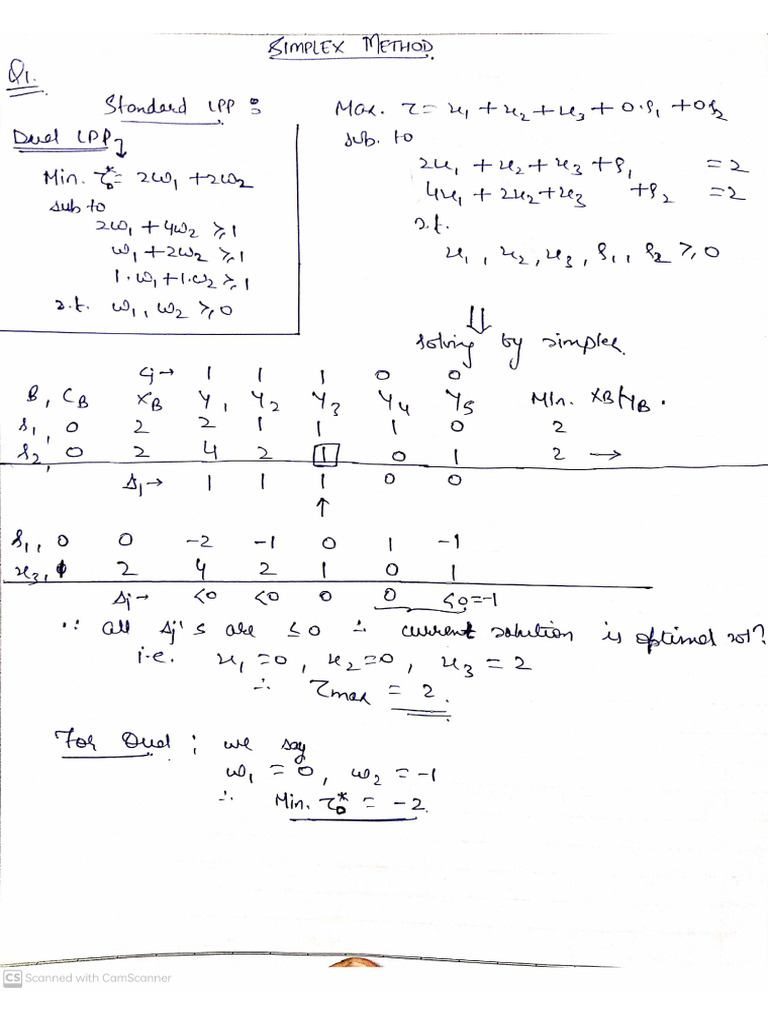 SIMPLEX METHOD.
Q1.
Standard LPP :
Max. Z = x1 + x2 + x3 + 0·s1 + 0s2
sub. to
2x1 + x2 + x3 + s1 = 2
4x1 + 2x2 + x3 + s2 = 2
s.t.
x1, x2, x3, s1, s2 ≥ 0
Dual LPP
Min. Z*D = 2w1 + 2w2
sub to
2w1 + 4w2 ≥ 1
w1 + 2w2 ≥ 1
1·w1 + 1·w2 ≥ 1
s.t. w1, w2 ≥ 0
⇓
solving by simplex.
Cj → 1 1 1 0 0
B, CB XB Y1 Y2 Y3 Y4 Y5 Min. XB/YB.
s1, 0 2 2 1 1 1 0 2
s2, 0 2 4 2 1 0 1 2 →
Δj → 1 1 1 0 0
↑
s1, 0 0 -2 -1 0 1 -1
x3, 1 2 4 2 1 0 1
Δj → <0 <0 0 0 <0=-1
∵ all Δj's are ≤ 0 ∴ current solution is optimal solⁿ
i.e. x1 = 0, x2 = 0, x3 = 2
∴ Zmax = 2.
For Dual : we say
w1 = 0, w2 = -1
∴ Min. Z*D = -2.
CS Scanned with CamScanner